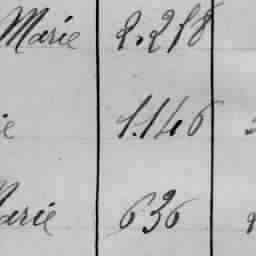 Marie 2.218
ie 1.146
Marie 636